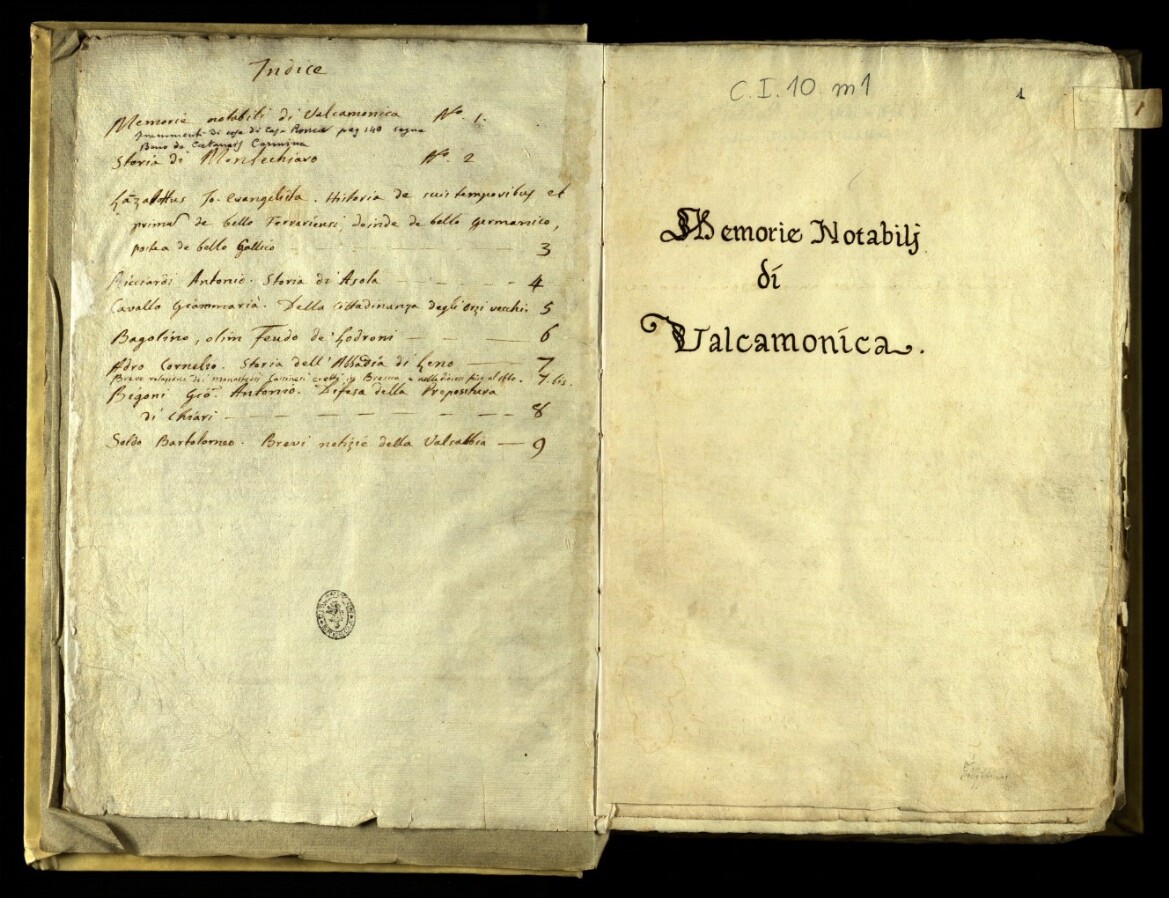 Indice
Memorie notabili di Valcamonica No. 1.
frammenti di cose di Casa Ronca pag 140 segue
Bono de Catanaris Carmina
Storia di Montechiaro No. 2
Jo. Evangelista. Historia de suis temporibus et
primal de bello Ferrariensi, deinde de bello germanico,
postea de bello Gallico 3
Ricciardi Antonio. Storia di Asola 4
Cavallo Giammaria. Della Cittadinanza degli Orzi vecchi. 5
Bagolino, olim Feudo de' Lodroni 6
Adro Cornelio. Storia dell'Abbadia di Leno 7
Breve relazione dei monasteri Cassinesi eretti in Brescia e 7. bis.
Bigoni Gio. Antonio. Difesa della Prepositura
di Chiari 8
Soldo Bartolomeo. Brevi notizie della Valsabbia 9
C.I.10 m1
1
1
Memorie Notabilj
di
Valcamonica.